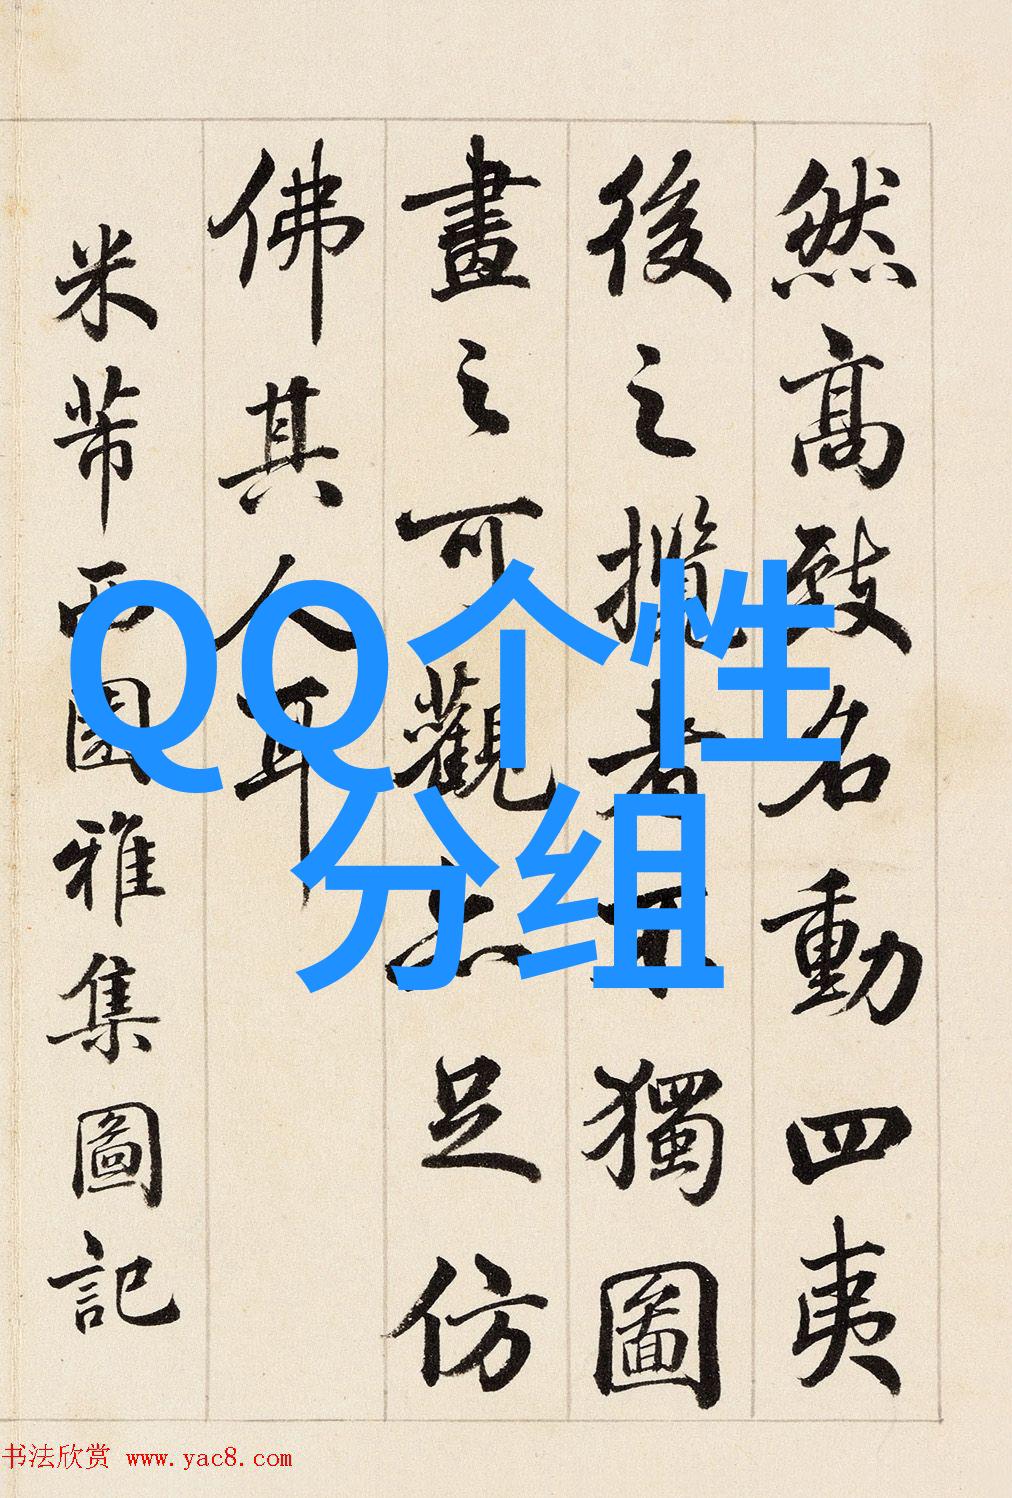 然高致名動四夷
後之攬者不獨圖
畫之可觀亦足仿
佛其人耳
米芾西園雅集圖記
QQ个性
分组
书法欣赏 www.yac8.com